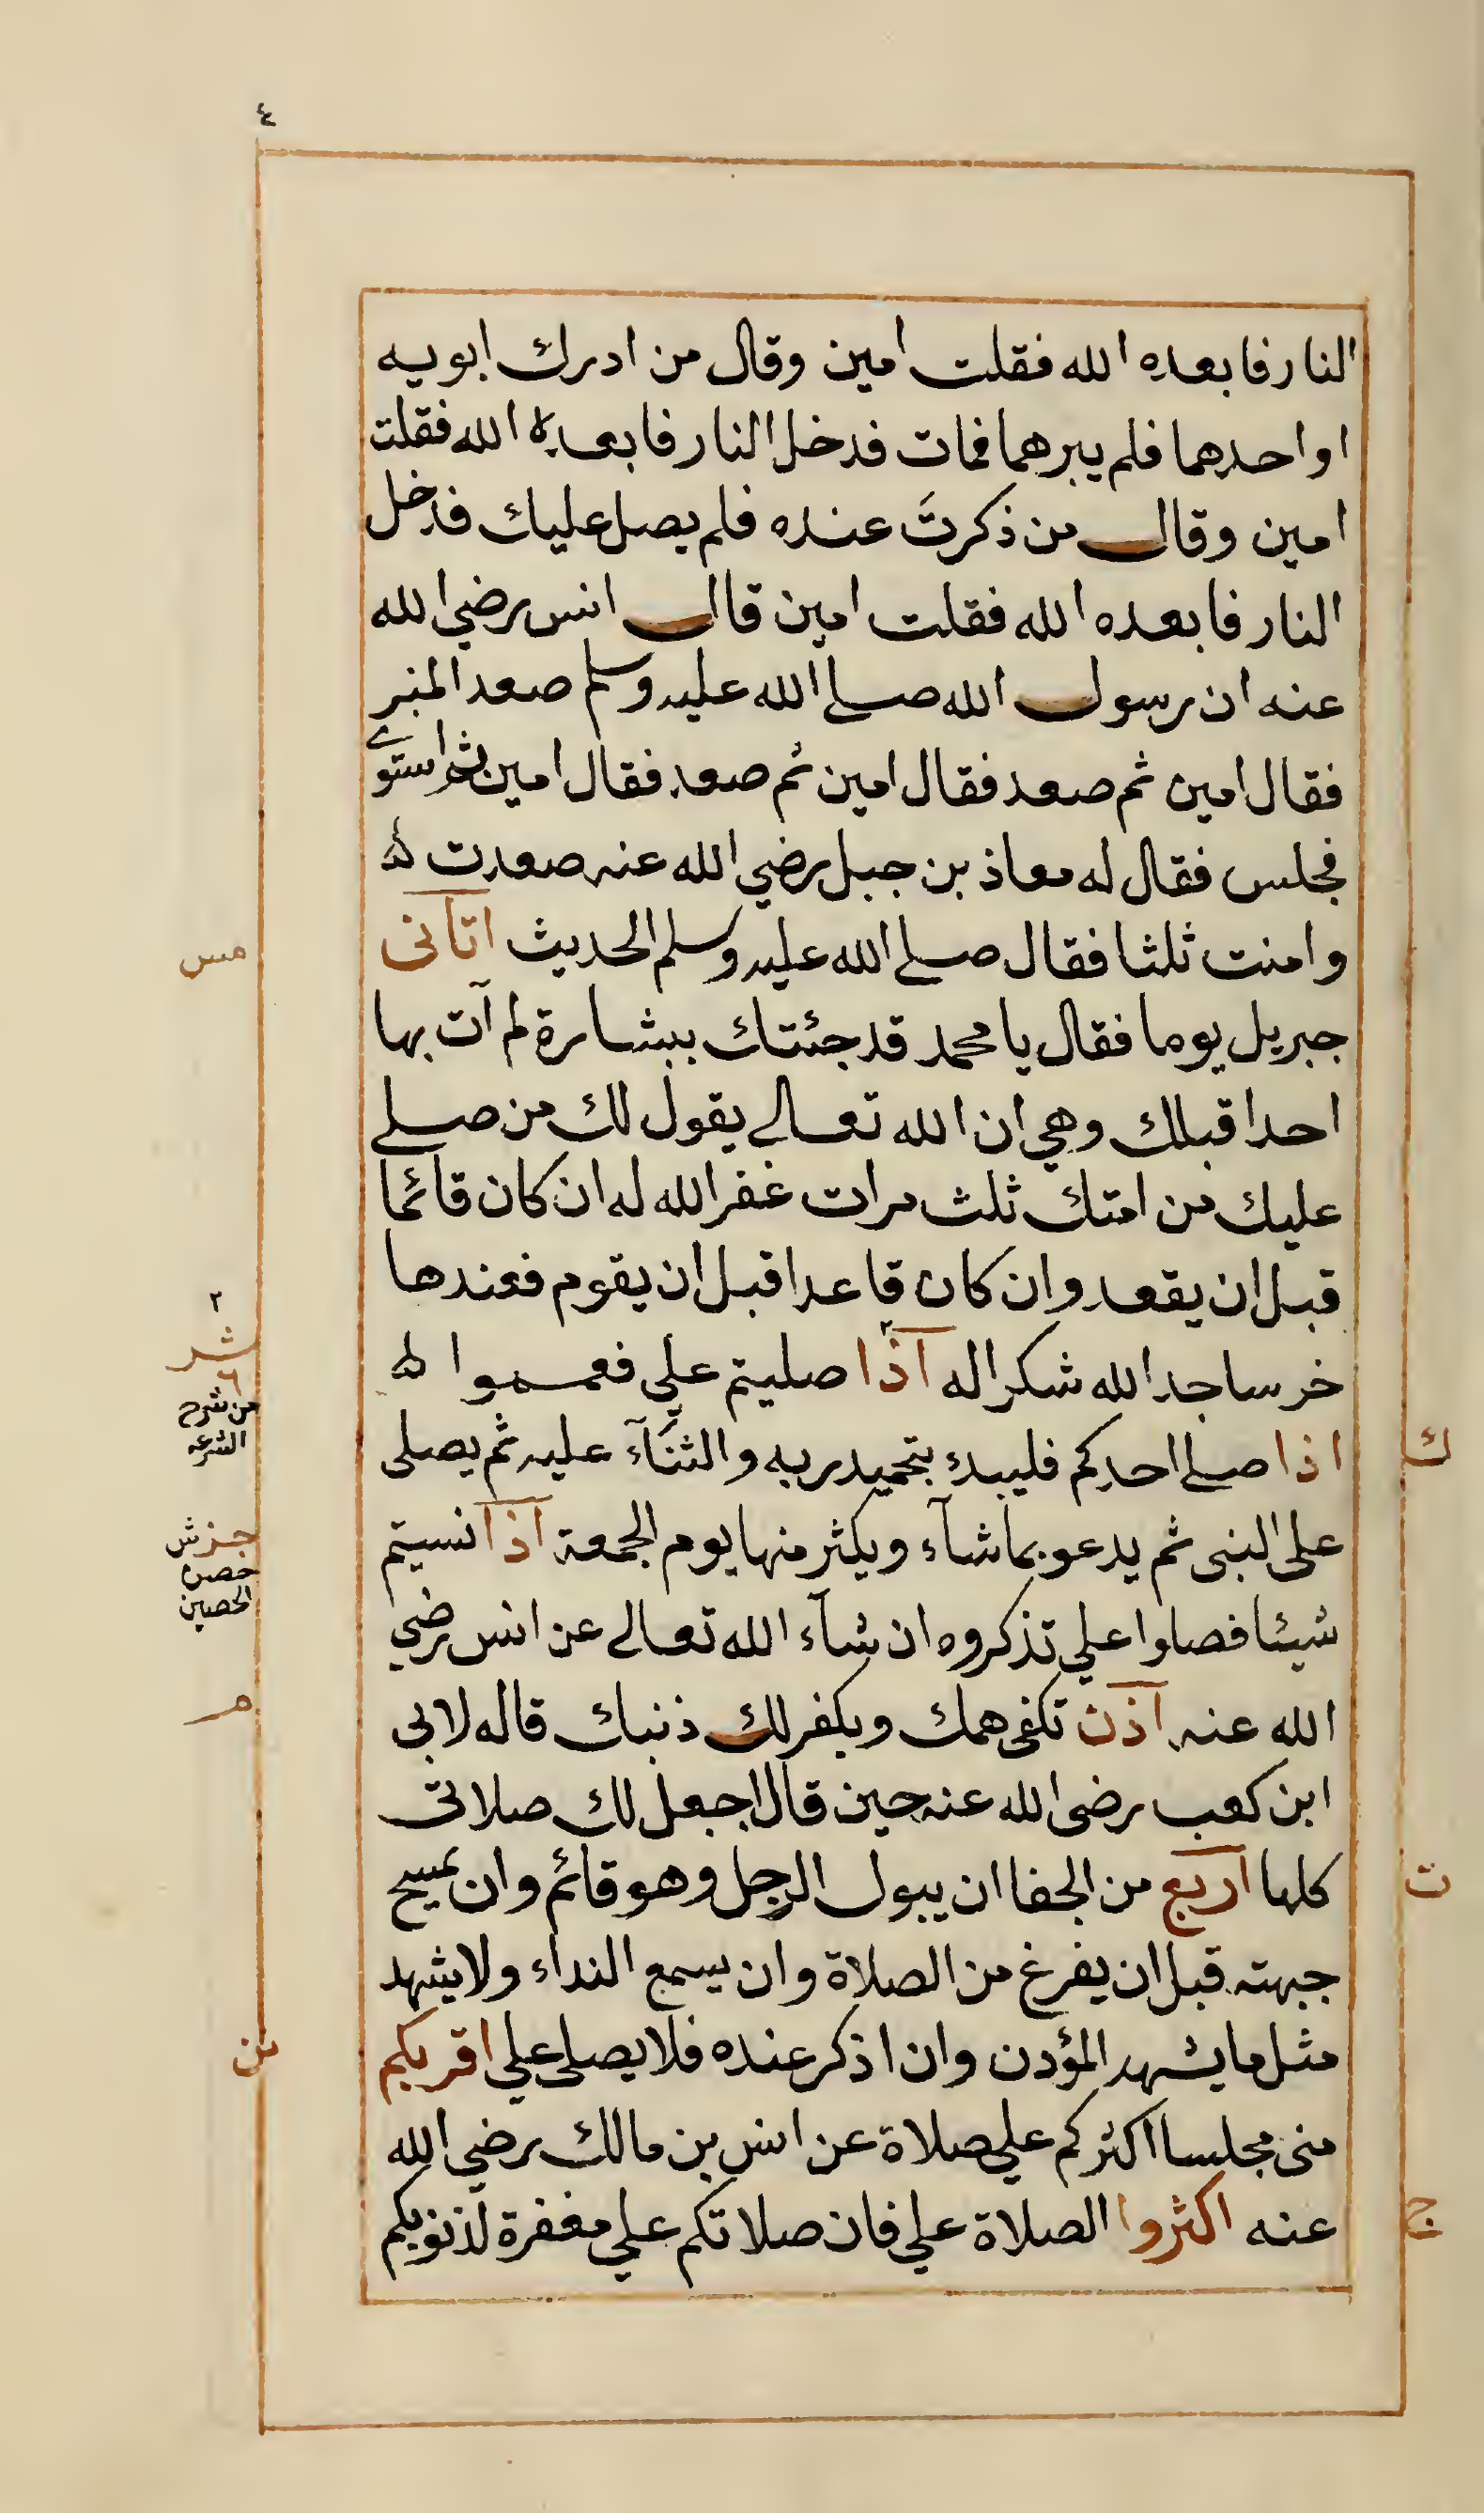 ٤
النار فابعده الله فقلت امين وقال من ادرك ابويه
او احدهما فلم يبرهما فمات فدخل النار فابعده الله فقلت
امين وقال من ذكرتَ عنده فلم يصل عليك فدخل
النار فابعده الله فقلت امين قال انس رضي الله
عنه ان رسول الله صلى الله عليه وسلم صعد المنبر
فقال امين ثم صعد فقال امين ثم صعد فقال امين ثم استوى
فجلس فقال له معاذ بن جبل رضي الله عنه صعدت
وامنت ثلثا فقال صلى الله عليه وسلم الحديث اتانى
مس
جبريل يوما فقال يا محمد قد جئتك ببشارة لم آت بها
احدا قبلك وهي ان الله تعالى يقول لك من صلى
عليك من امتك ثلث مرات غفر الله له ان كان قائما
قبل ان يقعد وان كان قاعدا قبل ان يقوم فعندها
٢
خر ساجدا لله شكرا له اذا صليتم علي فعمموا
شر
٦
من شرح
الشرعه
ك
اذا صلى احدكم فليبدء بتحميد ربه والثنآء عليه ثم يصلى
على النبى ثم يدعو بما شآء ويكثر منها يوم الجمعة اذا نسيتم
حصن
الحصين
شيئا فصلوا علي تذكروه ان شآء الله تعالى عن انس رضي
الله عنه اذن تكفى همك ويكفر لك ذنبك قاله لابى
م
ابن كعب رضى الله عنه حين قال اجعل لك صلاتى
كلها اربع من الجفا ان يبول الرجل وهو قائم وان يمسح
ت
جبهته قبل ان يفرغ من الصلاة وان يسمع النداء ولا يشهد
مثل ما يشهد المؤذن وان اذكر عنده فلا يصلى علي اقربكم
منى مجلسا اكثركم علي صلاة عن انس بن مالك رضي الله
عنه اكثروا الصلاة علي فان صلاتكم علي مغفرة لذنوبكم
ج